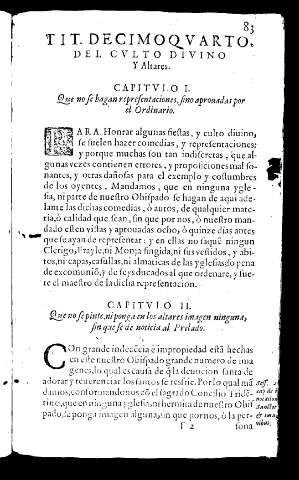 83
TIT. DECIMOQVARTO.
DEL CVLTO DIVINO
Y Altares.
CAPITVLO I.
Que no se hagan representaciones, sino aprouadas por
el Ordinario.
PARA Honrar algunas fiestas, y culto diuino,
se suelen hazer comedias, y representaciones:
y porque muchas son tan indiscretas, que al-
gunas vezes contienen errores, y proposiciones mal so-
nantes, y otras dañosas para el exemplo y costumbres
de los oyentes. Mandamos, que en ninguna ygle-
sia, ni parte de nuestro Obispado se hagan de aqui ade-
lante las dichas comedias, ò autos, de qualquier mate-
ria, ò calidad que sean, sin que por nos, ò nuestro man-
dado esten vistas y aprouadas ocho, ò quinze dias antes
que se ayan de representar: y en ellas no saquẽ ningun
Clerigo, Frayle, ni Monja fingida, ni sus vestidos, y abi-
tos, ni capas, casullas, ni almaticas de las yglesias, so pena
de excomuniõ, y de seys ducados al que ordenare, y fue-
re el maestro de la dicha representacion.
CAPITVLO II.
Que no se pinte, ni ponga en los altares imagen ninguna,
sin que se de noticia al Prelado.
COn grande indecẽcia e impropiedad estã hechas
en este nuestro Obispado grande numero de ima-
genes, lo qual es causa de q̃ la deuocion santa de
adorar y reuerenciar los santos se resfrie. Por lo qual mã
damos, conformandonos cõ el sagrado Concilio Tridẽ-
tino, que en ninguna yglesia, ni hermita de nuestro Obis
pado, se ponga imagen alguna, sin que por nos, ò la per-
Sess.
de in
uocation
Sanctor.
F 2
sona